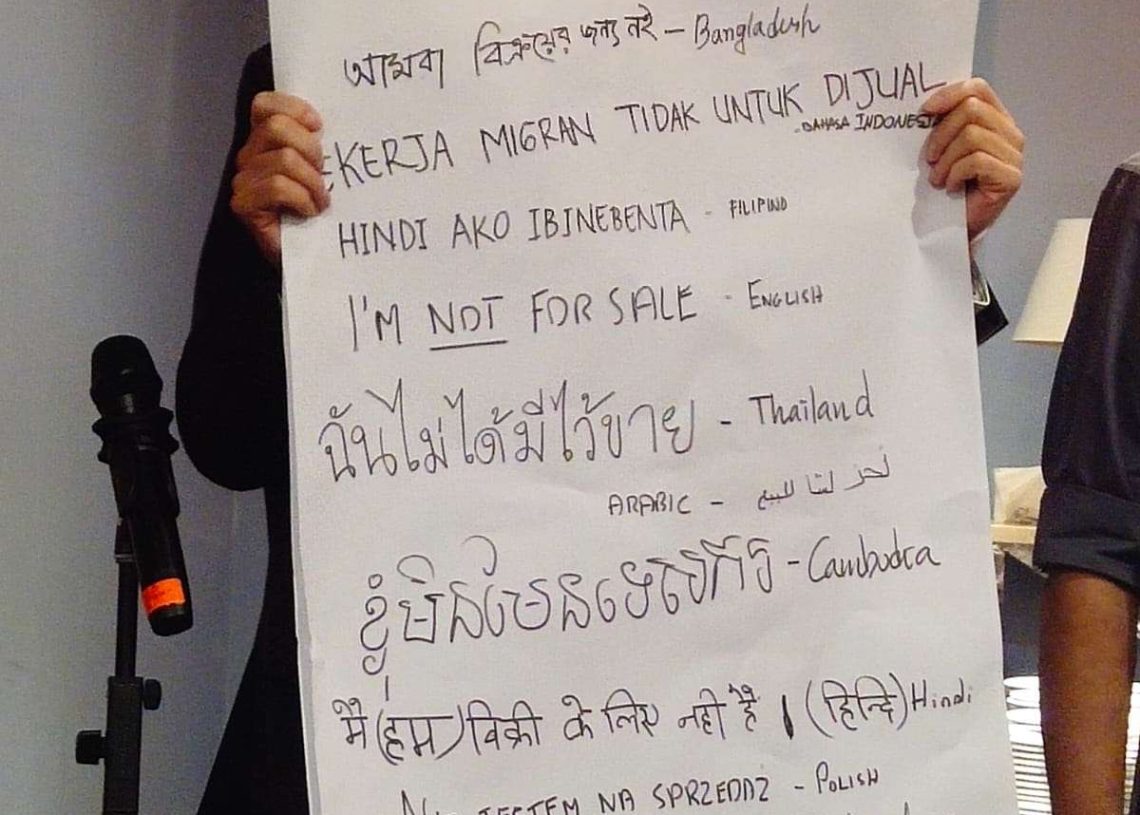 আমরা বিক্রয়ের জন্য নই – Bangladesh
EKERJA MIGRAN TIDAK UNTUK DIJUAL
- BAHASA INDONESIA
HINDI AKO IBINEBENTA - FILIPINO
I'M NOT FOR SALE - ENGLISH
ฉันไม่ได้มีไว้ขาย - Thailand
ARABIC - نحن لسنا للبيع
ខ្ញុំមិនមែនទេ - Cambodia
मैं (हम) विक्री के लिए नही है । (हिन्दि) Hindi
JESTEM NA SPRZEDAZ - POLISH